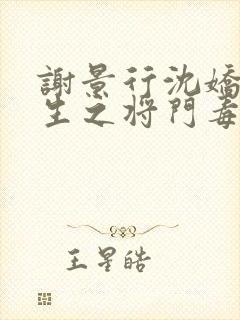 謝景行沈嬌
生之将門毒
王星皓